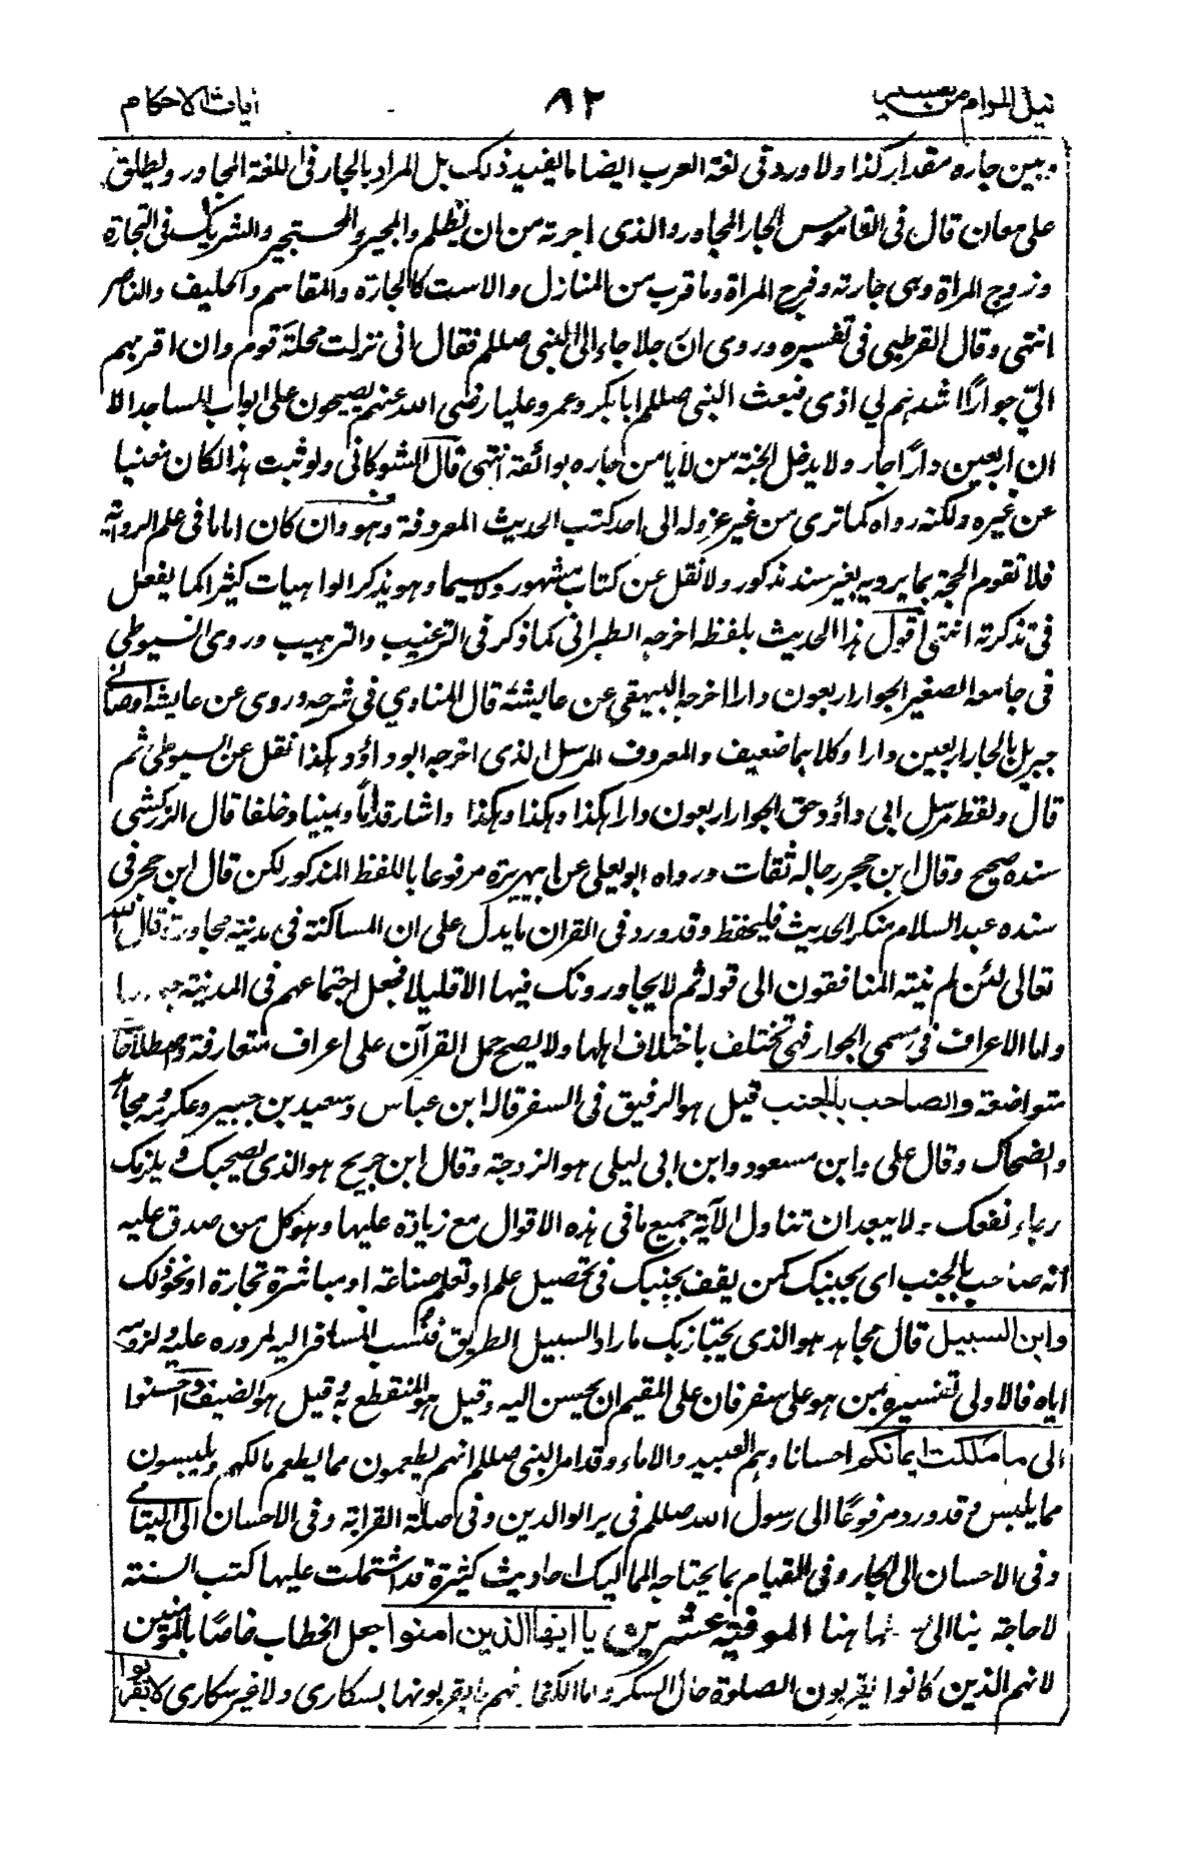 نيل المرام من تفسير ٨٢ آيات الاحكام
وبين جاره مقدار كذا ولا ورد فى لغة العرب ايضا ما يفيد ذلك بل المراد بالجار فى اللغة المجاور ويطلق
على معان قال فى القاموس الجار المجاور والذى اجرته من ان يظلم والمجير والمستجير والشريك فى التجارة
وزوج المراة وهى جارته وفرج المراة وما قرب من المنازل والاست كالجارة والمقاسم والحليف والناصر
انتهى وقال القرطبى فى تفسيره وروى ان رجلا جاء الى النبى صللم فقال انى نزلت محلة قوم وان اقربهم
الىّ جوارًا اشدهم لي اذى فبعث النبى صللم ابا بكر وعمر وعليا رضى الله عنهم يصيحون على ابواب المساجد الا
ان اربعين دارًا جار ولا يدخل الجنة من لا يامن جاره بوائقه انتهى قال الشوكانى ولو ثبت هذا لكان مغنيا
عن غيره ولكنه رواه كما ترى من غير عزو له الى احد كتب الحديث المعروفة وهو وان كان اماما فى علم الرواية
فلا تقوم الحجة بما يرويه بغير سند مذكور ولا نقل عن كتاب مشهور ولا سيما وهو يذكر الواهيات كثيرا كما يفعل
فى تذكرته انتهى اقول هذا الحديث بلفظه اخرجه الطبرانى كما ذكر فى الترغيب والترهيب وروى السيوطى
فى جامعه الصغير الجوار اربعون دارا اخرجه البيهقي عن عايشة قال المناوي فى شرحه وروى عن عايشة اوصانى
جبريل بالجار اربعين دارا وكلاهما ضعيف والمعروف المرسل الذى اخرجه ابو داؤد وهكذا نقل عن السيوطى ثم
قال ولفظ مرسل ابى داؤد حق الجوار اربعون دارا هكذا وهكذا وهكذا واشار قداما ويمينا وخلفا قال الزركشى
سنده صحيح وقال ابن حجر رجاله ثقات ورواه ابو يعلى عن ابى هريرة مرفوعا باللفظ المذكور لكن قال ابن حجر فى
سنده عبد السلام منكر الحديث فليحفظ وقد ورد فى القران ما يدل على ان المساكنة فى مدينة مجاورة قال الله
تعالى لئن لم ينته المنافقون الى قوله ثم لا يجاورونك فيها الا قليلا فجعل اجتماعهم فى المدينة
واما الاعراف فى مسمى الجوار فهى تختلف باختلاف اهلها ولا يصح حمل القرآن على اعراف متعارفة واصطلاحات
متواضعة والصاحب بالجنب قيل هو الرفيق فى السفر قاله ابن عباس وسعيد بن جبير وعكرمة ومجاهد
والضحاك وقال على وابن مسعود وابن ابى ليلى هو الزوجة وقال ابن جريج هو الذى يصحبك ويلزمك
رجاء نفعك ولا يبعد ان تناول الآية جميع ما فى هذه الاقوال مع زيادة عليها وهو كل من صدق عليه
انه صاحب بالجنب اى بجنبك كمن يقف بجنبك فى تحصيل علم او تعلم صناعة او مباشرة تجارة او نحو ذلك
وابن السبيل قال مجاهد هو الذى يجتاز بك مارا والسبيل الطريق فنسب المسافر اليه لمروره عليه ولزومه
اياه فالاولى تفسيره بمن هو على سفر فان على المقيم ان يحسن اليه وقيل هو المنقطع به وقيل هو الضيف واحسنوا
الى ما ملكت ايمانكم احسانا وهم العبيد والاماء وقد امر النبى صللم انهم يطعمون مما يطعم مالكهم ويلبسون
مما يلبس وقد ورد مرفوعًا الى رسول الله صللم فى بر الوالدين وفى صلة القرابة وفى الاحسان الى اليتامى
وفى الاحسان الى الجار وفى القيام بما يحتاجه المماليك احاديث كثيرة قد اشتملت عليها كتب السنة
لا حاجة بنا الى ها هنا الموفية عشرين يا ايها الذين امنوا جعل الخطاب خاصًا بالمؤمنين
لانهم الذين كانوا يقربون الصلوة حال السكر واما الكفار فهم لا يقربونها سكارى ولا غير سكارى لا تقربوا